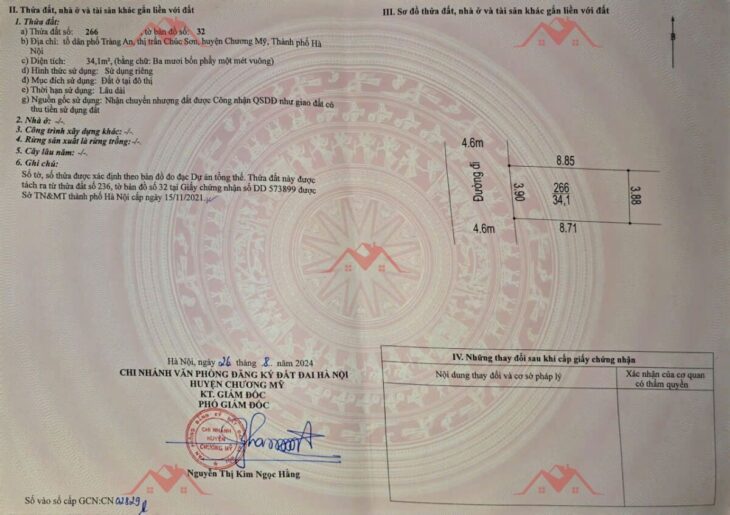 II. Thửa đất, nhà ở và tài sản khác gắn liền với đất
1. Thửa đất:
a) Thửa đất số: 266 , tờ bản đồ số: 32
b) Địa chỉ: tổ dân phố Tràng An, thị trấn Chúc Sơn, huyện Chương Mỹ, Thành phố Hà
Nội
c) Diện tích: 34,1m², (bằng chữ: Ba mươi bốn phẩy một mét vuông)
d) Hình thức sử dụng: Sử dụng riêng
đ) Mục đích sử dụng: Đất ở tại đô thị
e) Thời hạn sử dụng: Lâu dài
g) Nguồn gốc sử dụng: Nhận chuyển nhượng đất được Công nhận QSDĐ như giao đất có
thu tiền sử dụng đất
2. Nhà ở: -/-.
3. Công trình xây dựng khác: -/-.
4. Rừng sản xuất là rừng trồng: -/-.
5. Cây lâu năm: -/-.
6. Ghi chú:
Số tờ, số thửa được xác định theo bản đồ đo đạc Dự án tổng thể. Thửa đất này được
tách ra từ thửa đất số 236, tờ bản đồ số 32 tại Giấy chứng nhận số DD 573899 được
Sở TN&MT thành phố Hà Nội cấp ngày 15/11/2021.
Hà Nội, ngày 26 tháng 8 năm 2024
CHI NHÁNH VĂN PHÒNG ĐĂNG KÝ ĐẤT ĐAI HÀ NỘI
HUYỆN CHƯƠNG MỸ
KT. GIÁM ĐỐC
PHÓ GIÁM ĐỐC
CHI NHÁNH
HUYỆN
CHƯƠNG MỸ
Nguyễn Thị Kim Ngọc Hằng
Số vào sổ cấp GCN:CN 02829
III. Sơ đồ thửa đất, nhà ở và tài sản khác gắn liền với đất
B
4.6m
Đường đi
4.6m
8.85
3.90
266
34,1
3.88
8.71
IV. Những thay đổi sau khi cấp giấy chứng nhận
Nội dung thay đổi và cơ sở pháp lý
Xác nhận của cơ quan
có thẩm quyền